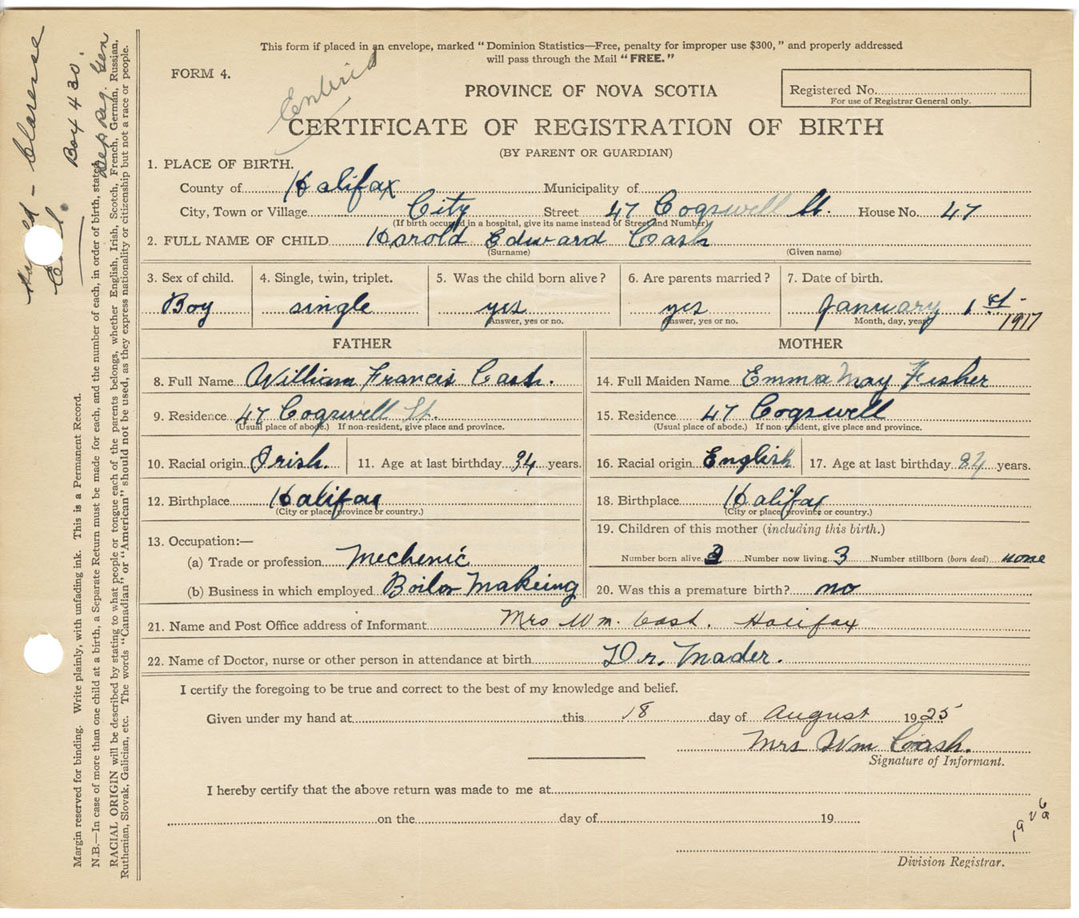 This form if placed in an envelope, marked "Dominion Statistics—Free, penalty for improper use $300," and properly addressed
will pass through the Mail "FREE."
FORM 4.
Entered
PROVINCE OF NOVA SCOTIA
Registered No.
For use of Registrar General only.
CERTIFICATE OF REGISTRATION OF BIRTH
(BY PARENT OR GUARDIAN)
1. PLACE OF BIRTH.
County of Halifax Municipality of
City, Town or Village City Street 47 Cogswell St. House No. 47
(If birth occurred in a hospital, give its name instead of Street and Number)
2. FULL NAME OF CHILD Harold Edward Cash
(Surname) (Given name)
3. Sex of child. 4. Single, twin, triplet. 5. Was the child born alive? 6. Are parents married? 7. Date of birth.
Boy single yes yes January 1st 1917
Answer, yes or no. Answer, yes or no. Month, day, year
FATHER MOTHER
8. Full Name William Francis Cash. 14. Full Maiden Name Emma May Fisher
9. Residence 47 Cogswell St. 15. Residence 47 Cogswell
(Usual place of abode.) If non-resident, give place and province. (Usual place of abode.) If non-resident, give place and province.
10. Racial origin Irish. 11. Age at last birthday 34 years. 16. Racial origin English 17. Age at last birthday years.
12. Birthplace Halifax 18. Birthplace Halifax
(City or place, province or country.) (City or place, province or country.)
13. Occupation:— 19. Children of this mother (including this birth.)
(a) Trade or profession Mechenic Number born alive 3 Number now living 3 Number stillborn (born dead) none
(b) Business in which employed Boiler Makeing 20. Was this a premature birth? no
21. Name and Post Office address of Informant Mrs Wm. Cash. Halifax
22. Name of Doctor, nurse or other person in attendance at birth Dr. Mader.
I certify the foregoing to be true and correct to the best of my knowledge and belief.
Given under my hand at this 18 day of August 1925
Mrs Wm Cash.
Signature of Informant.
I hereby certify that the above return was made to me at
on the day of 19
Division Registrar.
Margin reserved for binding. Write plainly, with unfading ink. This is a Permanent Record.
N.B.—In case of more than one child at a birth, a Separate Return must be made for each, and the number of each, in order of birth, stated.
RACIAL ORIGIN will be described by stating to what people or tongue each of the parents belongs, whether English, Irish, Scotch, French, German, Russian,
Ruthenian, Slovak, Galician, etc. The words "Canadian" or "American" should not be used, as they express nationality or citizenship but not a race or people.
Clarence
Box 430
Dep Reg. Gen